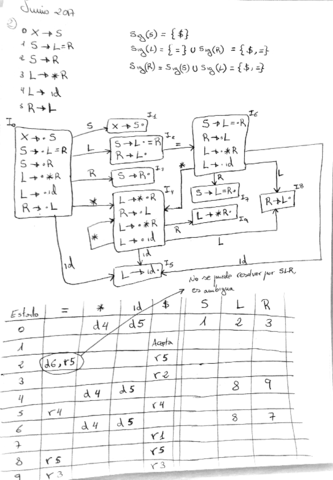 Junio 2017
②
0 X → S
1 S → L = R
2 S → R
3 L → * R
4 L → id
5 R → L
Sig(S) = {$}
Sig(L) = {=} ∪ Sig(R) = {$, =}
Sig(R) = Sig(S) ∪ Sig(L) = {$, =}
I0
X → • S
S → • L = R
S → • R
L → • * R
L → • id
R → • L
S
I1
X → S •
L
I2
S → L • = R
R → L •
=
R
I3
S → R •
I6
S → L = • R
R → • L
L → • * R
L → • id
R
S → L = R •
I7
L
I8
R → L •
*
I4
L → * • R
R → • L
L → • * R
L → • id
R
L → * R •
I9
L
*
*
id
id
id
I5
L → id •
No se puede resolver por SLR,
es ambigua
Estado = * id $ S L R
0 d4 d5 1 2 3
1 Acepta
2 d6, r5 r5
3 r2
4 d4 d5 8 9
5 r4 r4
6 d4 d5 8 7
7 r1
8 r5 r5
9 r3 r3